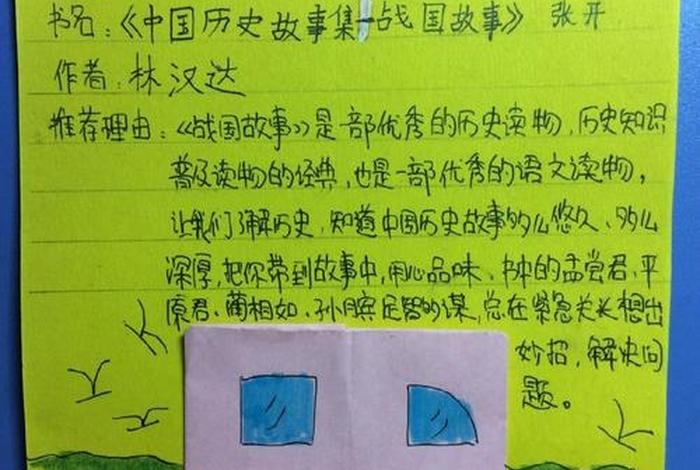 书名：《中国历史故事集-战国故事》 张开
作者：林汉达
推荐理由：《战国故事》是一部优秀的历史读物，历史知识
普及读物的经典，也是一部优秀的语文读物，
让我们了解历史，知道中国历史故事的多么悠久、多么
深厚，把你带到故事中，用心品味、书中的孟尝君、平
原君、蔺相如、孙膑足智的谋，总在紧急关长想出
妙招，解决问
题。